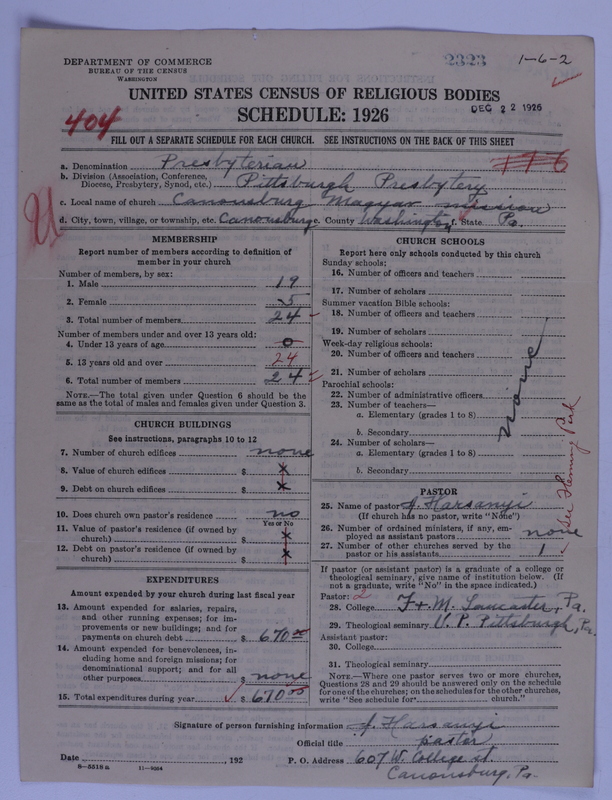 DEPARTMENT OF COMMERCE
BUREAU OF THE CENSUS
WASHINGTON
2323
1-6-2
UNITED STATES CENSUS OF RELIGIOUS BODIES
SCHEDULE: 1926
DEC 22 1926
404
FILL OUT A SEPARATE SCHEDULE FOR EACH CHURCH. SEE INSTRUCTIONS ON THE BACK OF THIS SHEET
a. Denomination Presbyterian
176
b. Division (Association, Conference, Diocese, Presbytery, Synod, etc.) Pittsburgh Presbytery
c. Local name of church Canonsburg Magyar Mission
d. City, town, village, or township, etc. Canonsburg e. County Washington f. State Pa.
MEMBERSHIP
Report number of members according to definition of
member in your church
Number of members, by sex:
1. Male 19
2. Female 5
3. Total number of members 24
Number of members under and over 13 years old:
4. Under 13 years of age 0
5. 13 years old and over 24
6. Total number of members 24
NOTE.—The total given under Question 6 should be
same as the total of males and females given under Question 3.
CHURCH BUILDINGS
See instructions, paragraphs 10 to 12
7. Number of church edifices none
8. Value of church edifices $ x
9. Debt on church edifices $ x
10. Does church own pastor's residence? no
Yes or No
11. Value of pastor's residence (if owned by
church) $ x
12. Debt on pastor's residence (if owned by
church) $ x
EXPENDITURES
Amount expended by your church during last fiscal year
13. Amount expended for salaries, repairs,
and other running expenses; for im-
provements or new buildings; and for
payments on church debt $ 670.00
14. Amount expended for benevolences, in-
cluding home and foreign missions; for
denominational support; and for all
other purposes $ none
15. Total expenditures during year $ 670.00
CHURCH SCHOOLS
Report here only schools conducted by this church
Sunday schools:
16. Number of officers and teachers
17. Number of scholars
Summer vacation Bible schools:
18. Number of officers and teachers
19. Number of scholars
Week-day religious schools:
20. Number of officers and teachers
21. Number of scholars
Parochial schools:
22. Number of administrative officers
23. Number of teachers—
a. Elementary (grades 1 to 8)
b. Secondary
24. Number of scholars—
a. Elementary (grades 1 to 8)
b. Secondary
None
See Fleming Park
PASTOR
25. Name of pastor J. Harsanyi
(If church has no pastor, write "None")
26. Number of ordained ministers, if any, em-
ployed as assistant pastors none
27. Number of other churches served by the
pastor or his assistants 1
If pastor (or assistant pastor) is a graduate of a college or
theological seminary, give name of institution below. (If
not a graduate, write "No" in the space indicated.)
Pastor: 2
28. College F. & M. Lancaster, Pa.
29. Theological seminary U. P. Pittsburgh, Pa.
Assistant pastor:
30. College
31. Theological seminary
NOTE.—Where one pastor serves two or more churches,
Questions 28 and 29 should be answered only on the schedule
for one of the churches; on the schedules for the other churches,
write "See schedule for church."
Signature of person furnishing information J. Harsanyi
Official title pastor
Date , 192 P. O. Address 607 W. College St.
8—5518 a 11—9054
Canonsburg, Pa.